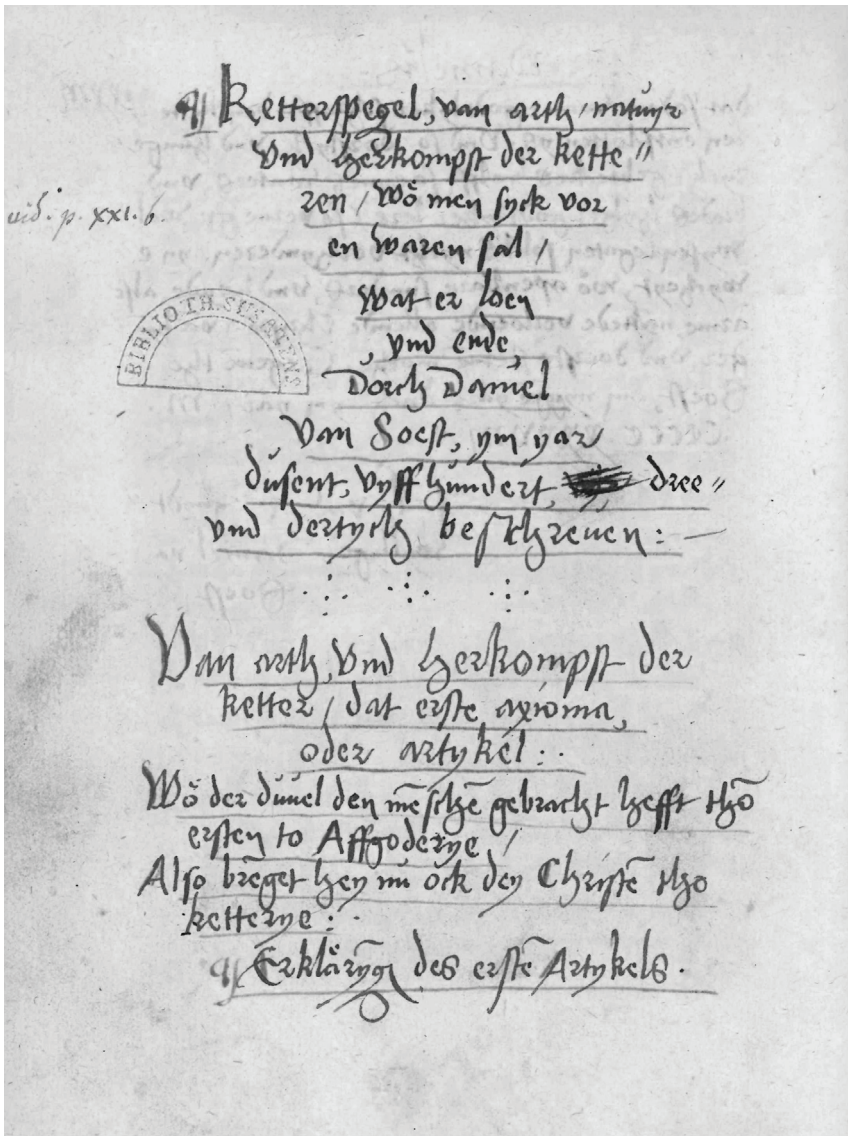 ¶ Ketterspegel, van arth / natuyr
vnd herkompst der kette〃
ren / Wo᷃ men syck vor
vid. p. XXI. b.
en waren sal /
Wat er loen
BIBLIOTH. SUSATENS
, vnd ende,
Dorch Daniel
Van Soest, ym yar
dusent, vyffhundert, dree〃
vnd dertych beschreuen : —
Van arth, vnd herkompst der
ketter / dat erste axioma,
oder artykel : ·
Wo᷃ der duuel den me̅sche̅ gebracht hefft tho̅
ersten to Affgoderye /
Also bre̅get hey nu ock dey Christe̅ tho
ketterye : ·
¶ Erkläry̅g des erste̅ Artykels ·